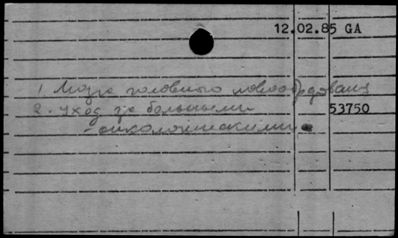 12.02.85 GA
1. Мозга головного новообразования
2. Уход за больными 53750
- онкологическими